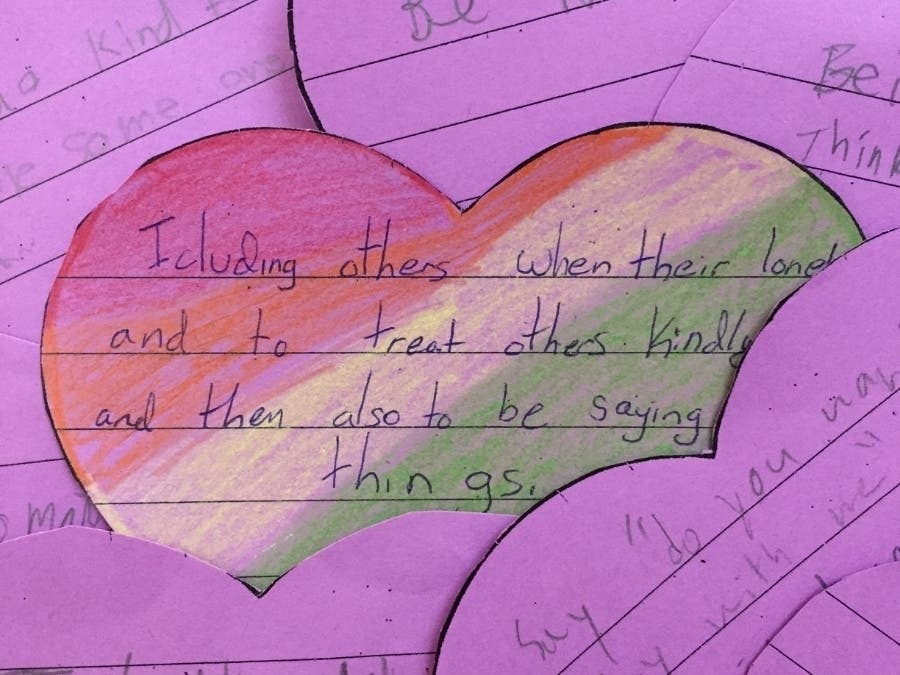 Kind
some one
Be
Bei
Think
Icluding others when their lonel
and to treat others kindly
and then also to be saying
things.
"do you wan
with me"
Say